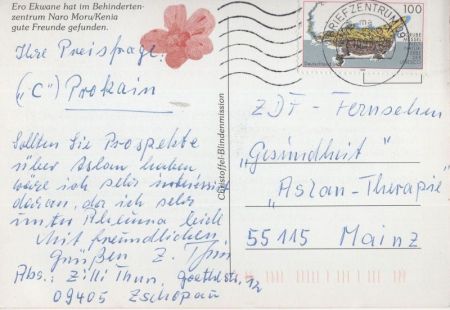 Ero Ekwane hat im Behinderten-
zentrum Naro Moru/Kenia
gute Freunde gefunden.
Ihre Preisfrage:
("C") Prokain
Sollten Sie Prospekte
über Aslan haben
wäre ich sehr interessiert
daran, da ich sehr
unter Rheuma leide
Mit freundlichen
Grüßen Z. Thun
Abs.: Zilli Thun, Goethestr. 12
09405 Zschopau
Christoffel-Blindenmission
BRIEFZENTRUM 09
100
ZDF-Fernsehen
"Gesundheit"
"Aslan-Therapie"
55115 Mainz